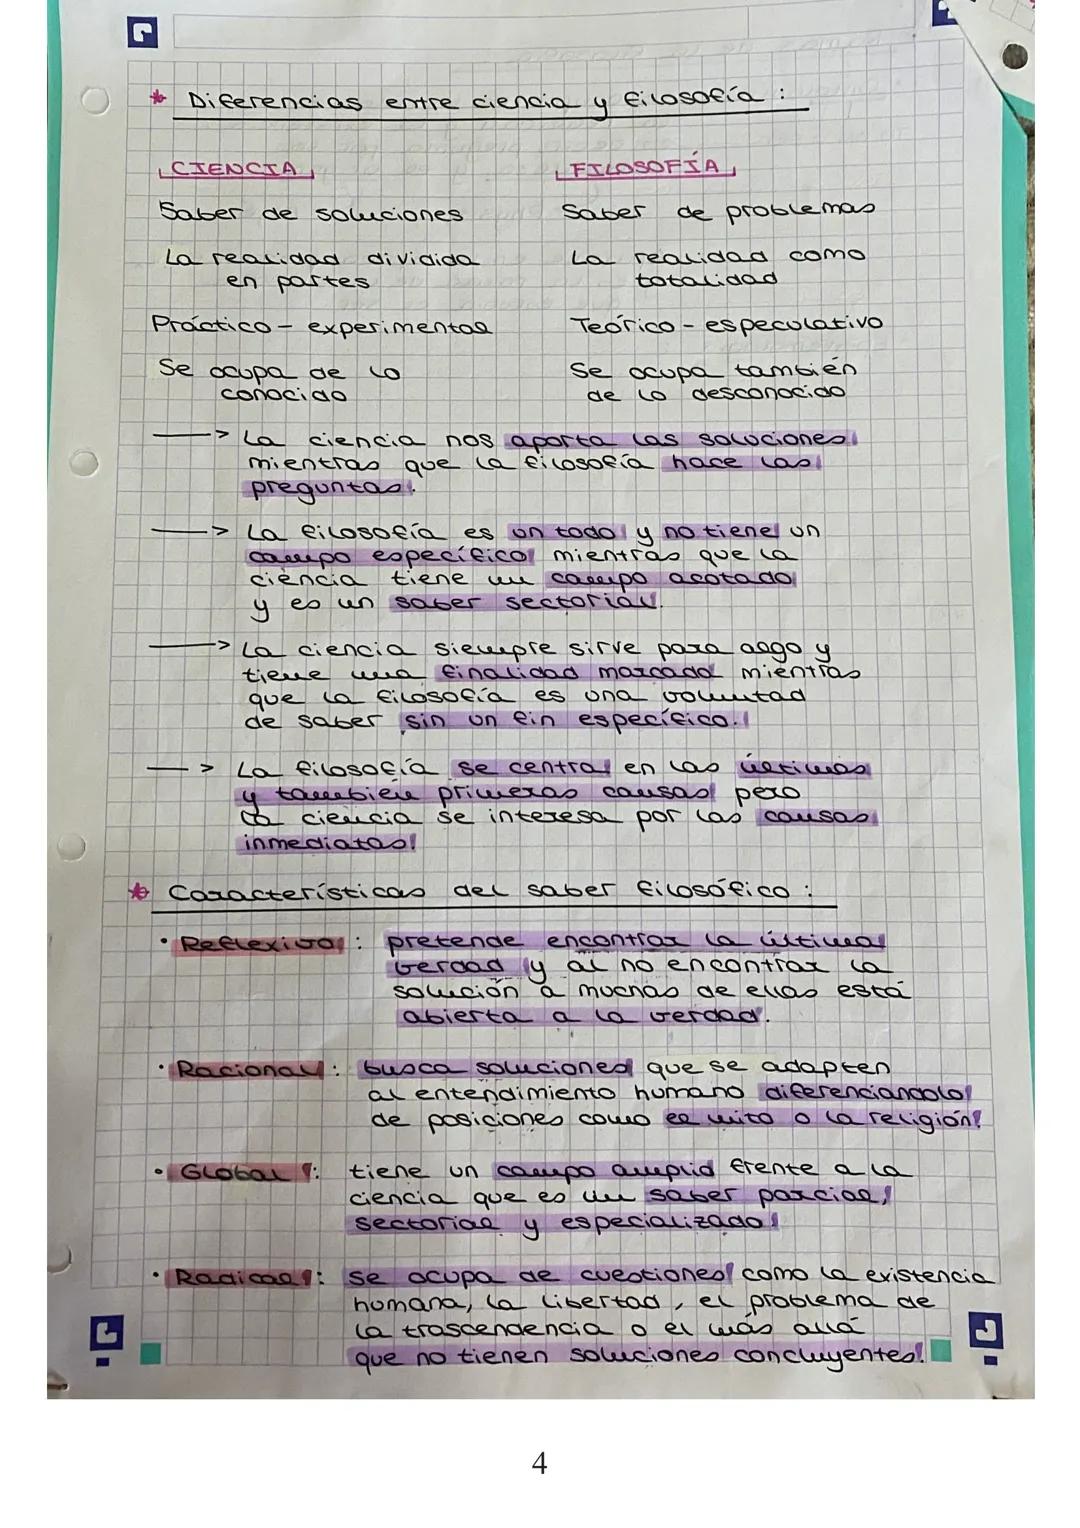 * Diferencias entre ciencia y filosofía :
CIENCIA FILOSOFÍA
Saber de soluciones Saber de problemas
La realidad dividida La realidad como
en partes totalidad
Práctico - experimental Teórico - especulativo
Se ocupa de lo Se ocupa también
conocido de lo desconocido
—> La ciencia nos aporta las soluciones
mientras que la filosofía hace las
preguntas.
—> La filosofía es un todo y no tiene un
campo específico mientras que la
ciencia tiene un campo acotado
y es un saber sectorial.
—> La ciencia siempre sirve para algo y
tiene una finalidad marcada mientras
que la filosofía es una voluntad
de saber sin un fin específico.
—> La filosofía se centra en las últimas
y también primeras causas pero
la ciencia se interesa por las causas
inmediatas
* Características del saber filosófico :
· Reflexivo : pretende encontrar la última
verdad y al no encontrar la
solución a muchas de ellas está
abierta a la verdad.
· Racional : busca soluciones que se adapten
al entendimiento humano diferenciandolo
de posiciones como el mito o la religión.
· Global : tiene un campo amplio frente a la
ciencia que es un saber parcial,
sectorial y especializado
· Radical : se ocupa de cuestiones como la existencia
humana, la libertad, el problema de
la trascendencia o el más allá
que no tienen soluciones concluyentes.
4